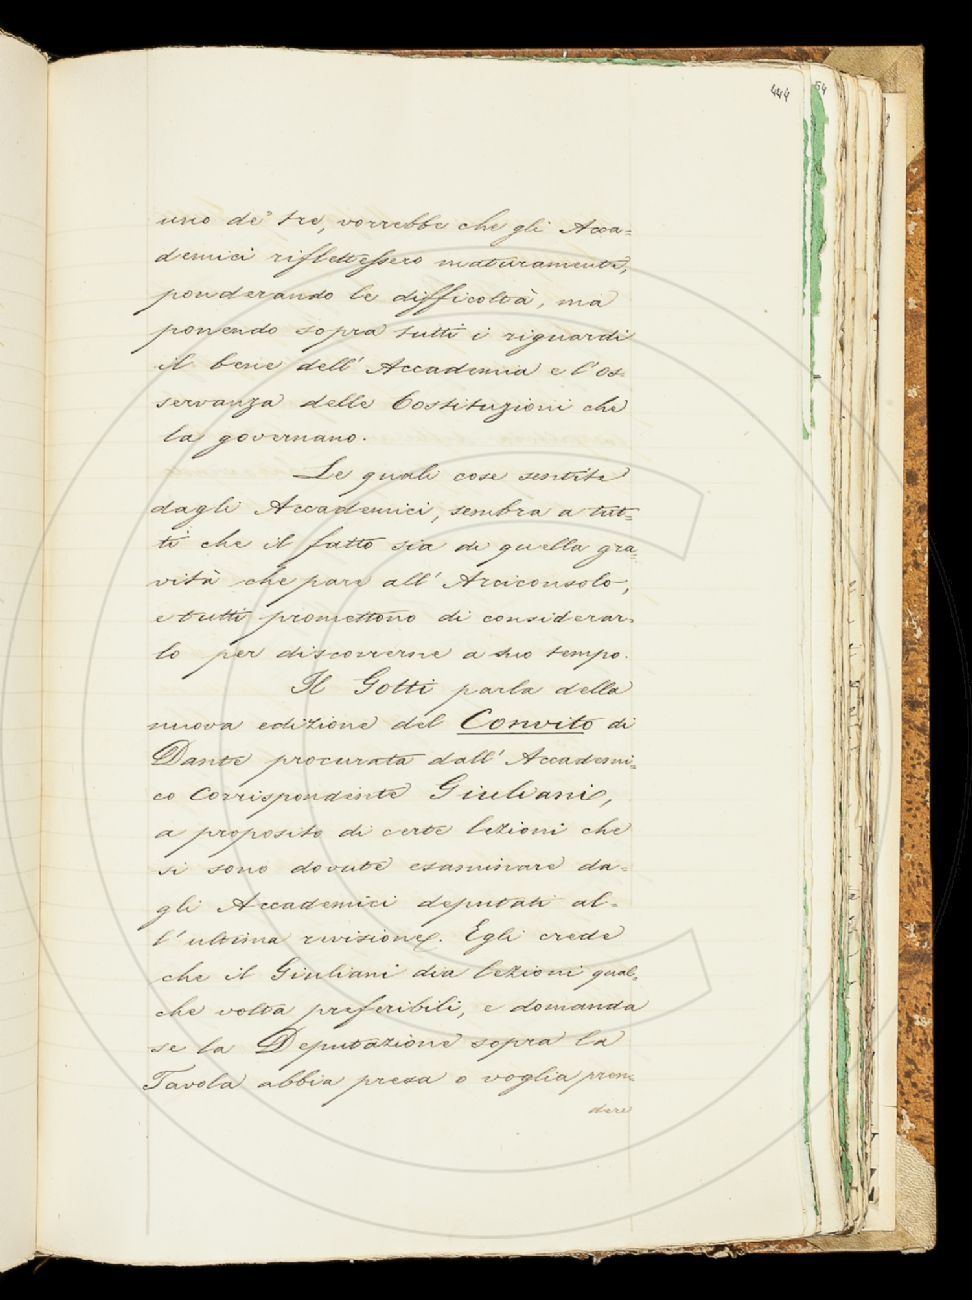 444
54
uno de' tre, vorrebbe che gli Acca=
demici riflettessero maturamente,
ponderando le difficoltà, ma
ponendo sopra tutti i riguardi
il bene dell'Accademia e l'os-
servanza delle Costituzioni che
la governano.
Le quali cose sentite
dagli Accademici, sembra a tut=
ti che il fatto sia di quella gra=
vità che pare all'Arciconsolo;
e tutti promettono di considerar-
lo per discorrerne a suo tempo.
Il Gotti parla della
nuova edizione del Convito di
Dante procurata dall'Accademi=
co Corrispondente Giuliani,
a proposito di certe lezioni che
si sono dovute esaminare da=
gli Accademici deputati al=
l'ultima revisione. Egli crede
che il Giuliani dia lezioni qual=
che volta preferibili, e domanda
se la Deputazione sopra la
Tavola abbia presa o voglia pren-
dere